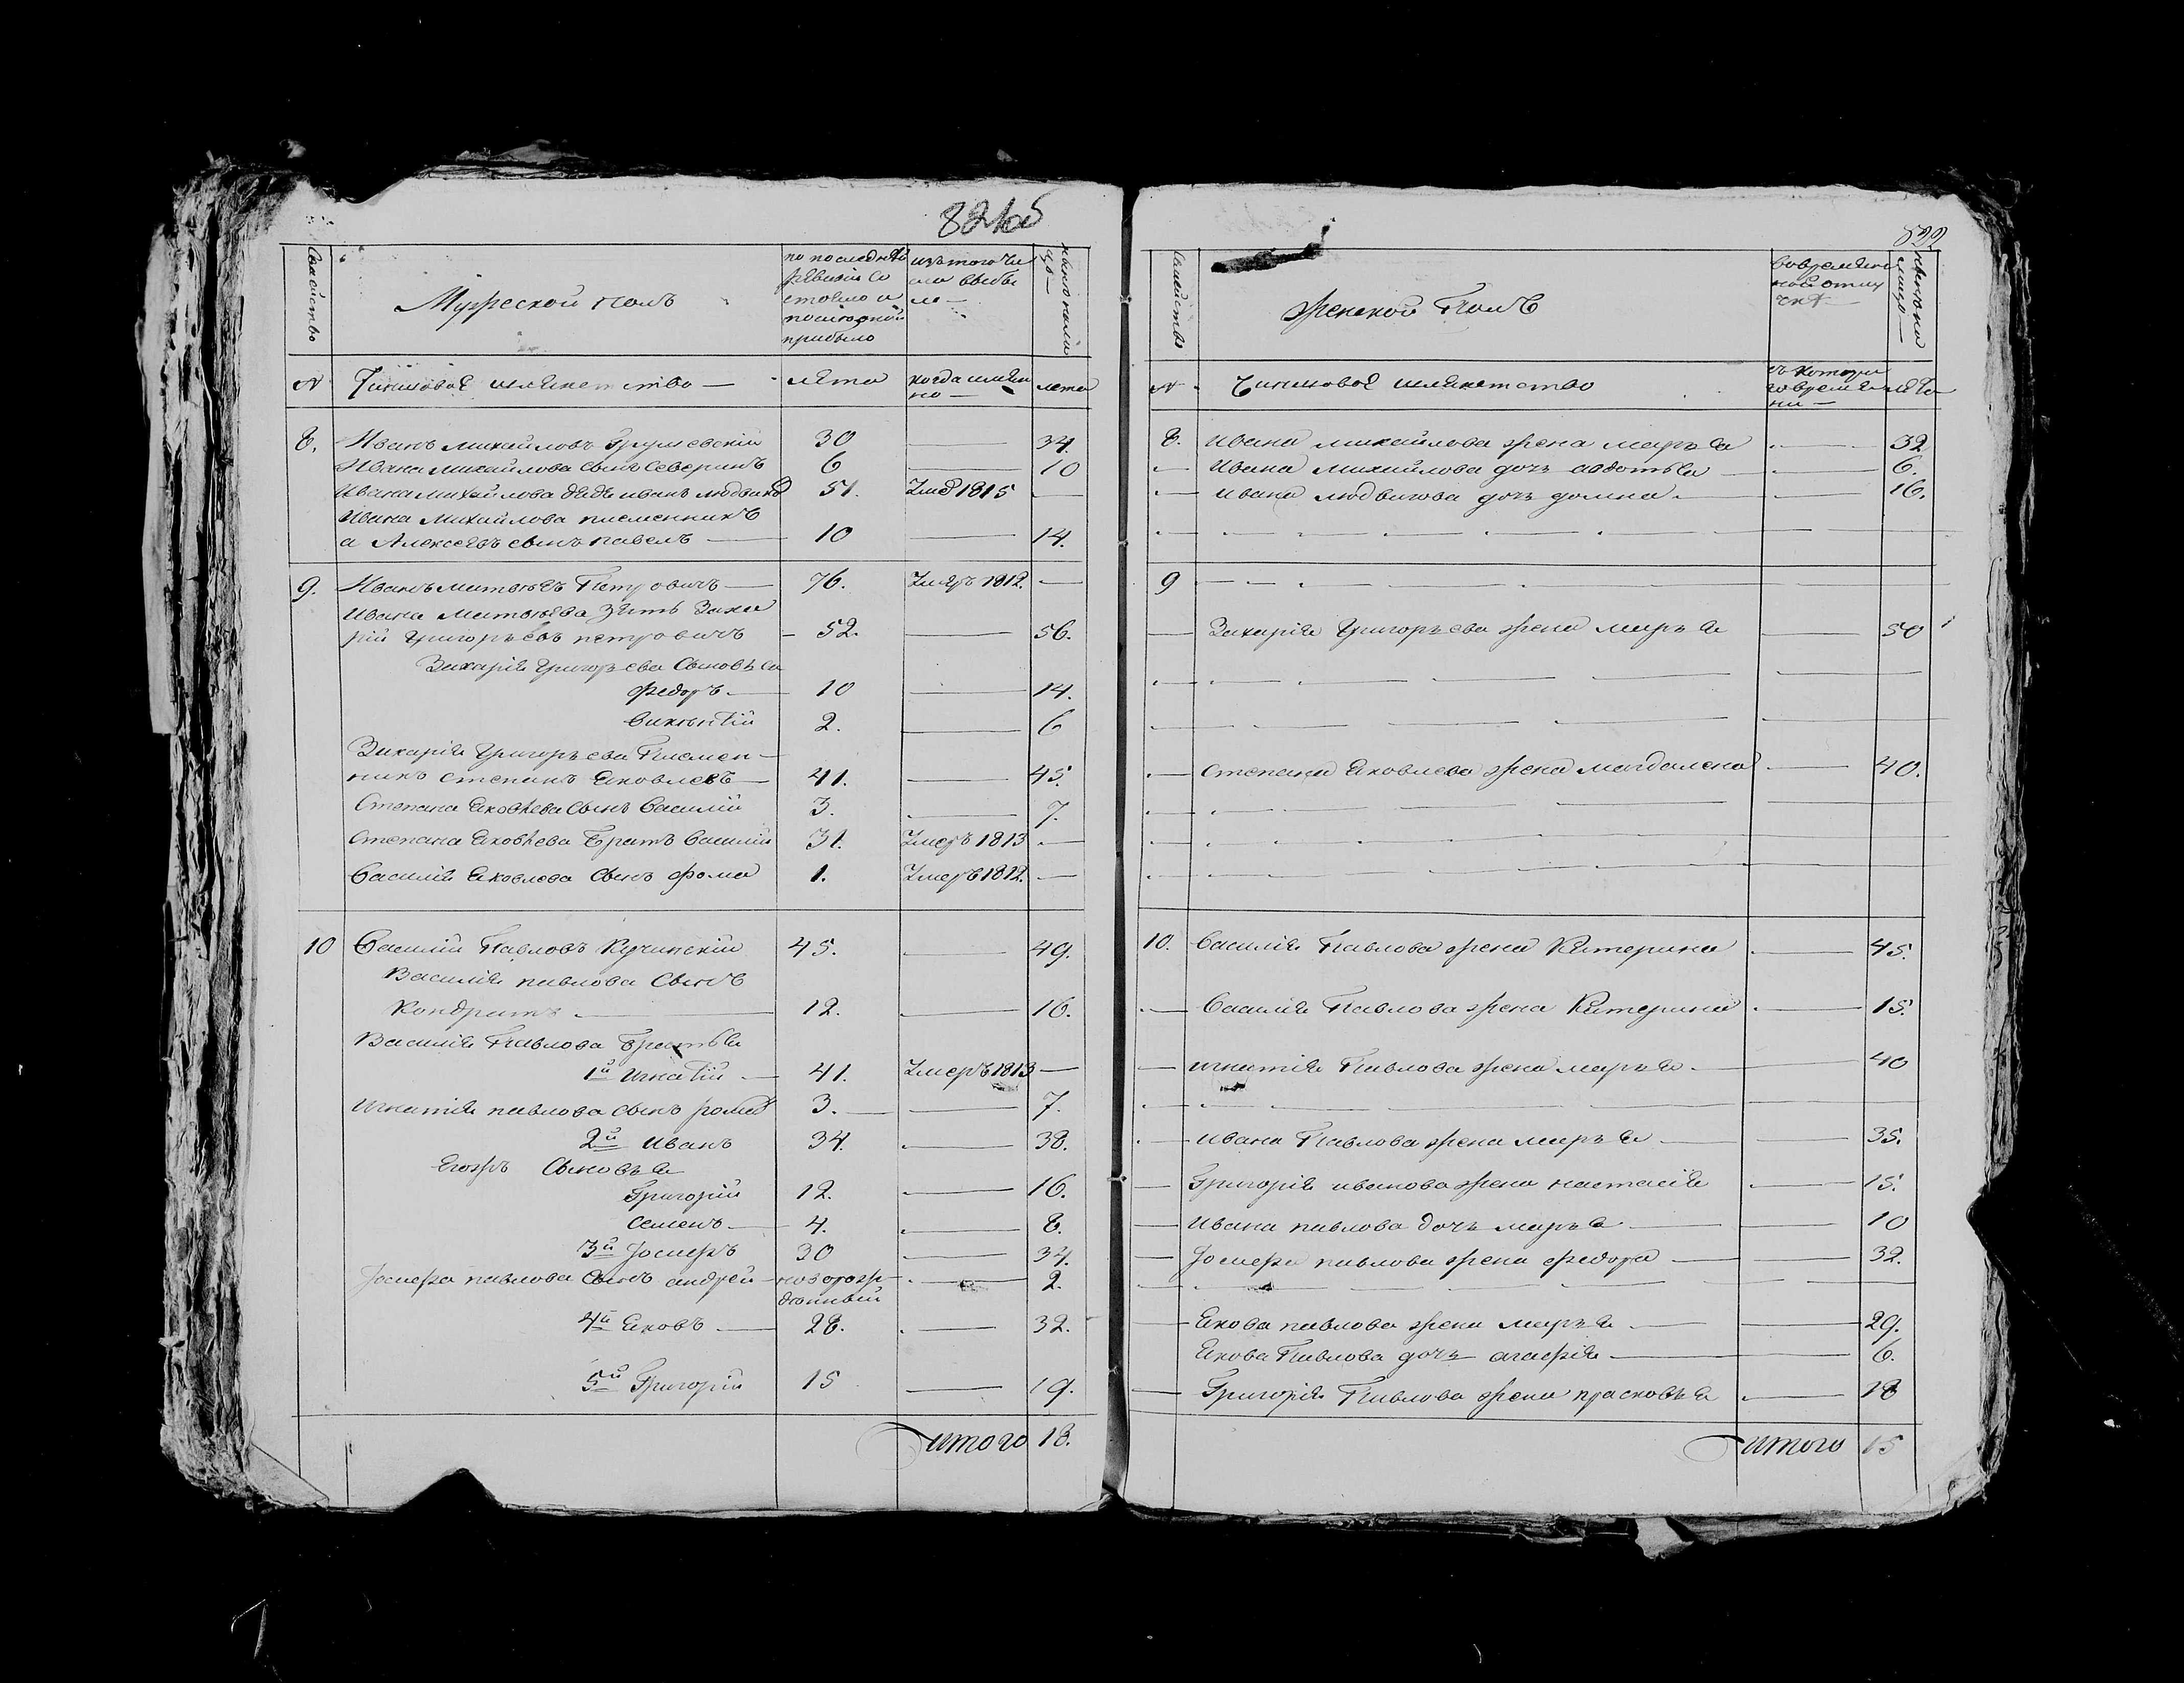 821об
Семейство
Мужеской полъ
по последней
ревизіи со
стояло и
после оной
прибыло
изъ того чи
сла выбы
ло —
ныне на ли
цо —
№ Чиншовое шляхетство — лета когда имян
но — лета
8. Иванъ Михайловъ Грушевскій 30 — 34.
Ивана Михайлова сынъ Северинъ 6 — 10
Ивана Михайлова дядя иванъ людвико 51. Умѣ 1815 —
Ивана Михайлова племенникъ
а Алексеевъ сынъ павелъ — 10 — 14.
9. Иванъ матвеевъ Петровичъ — 76. Умеръ 1812. —
Ивана Матвеева зять Заха
рій Григорьевъ петровичъ — 52. — 56.
Захарія Григорьева Сыновья
федоръ — 10 — 14.
викентій 2. — 6
Захарія Григорьева Племен —
никъ степанъ Яковлевъ — 41. — 45.
Степана Яковлева Сынъ Василій 3. — 7.
Степана Яковлева Братъ Василій 31. Умеръ 1813 —
Василія Яковлева Сынъ фома 1. Умеръ 1812. —
10 Василій Павловъ Кучинскій 45. — 49.
Василія павлова Сынъ
Кондратъ — 12. — 16.
Василія Павлова Братья
1й Игнатій — 41. Умеръ 1813 —
Игнатія павлова сынъ рома 3. — 7.
2й Иванъ 34. — 38.
Егожъ Сыновья
Григорій 12. — 16.
семенъ — 4. — 8.
3й Іосифъ 30 — 34.
Іосифа павлова Сынъ андрей — новорож —
донный — 2.
4й Яковъ — 28. — 32.
5й Григорій 15 — 19.
Итого 18.
822
Семейство
Женской Полъ
Во временн
ной отлу
чкѣ —
ныне на
лицо —
№ Чиншовое шляхетство съ котора
го време
ни — лета
8. Ивана михайлова жена марья — 32
— Ивана михайлова дочь авдотья — 6.
— Ивана людвигова дочь домна — 16.
9 —
— Захарія Григорьева жена марья — 50
— степана Яковлева жена магдалена — 40.
10. Василія Павлова жена Катерина — 45.
— Василія Павлова жена Катерина — 15.
— игнатія Павлова жена марья — 40
— Ивана Павлова жена марья — 35.
— Григорія иванова жена настасія — 15.
— Ивана павлова дочь марья — 10
— Іосифа павлова жена федора — 32.
— Якова павлова жена марья — 29.
Якова Павлова дочь агафія — 6.
— Григорія Павлова жена прасковья — 18
Итого 15